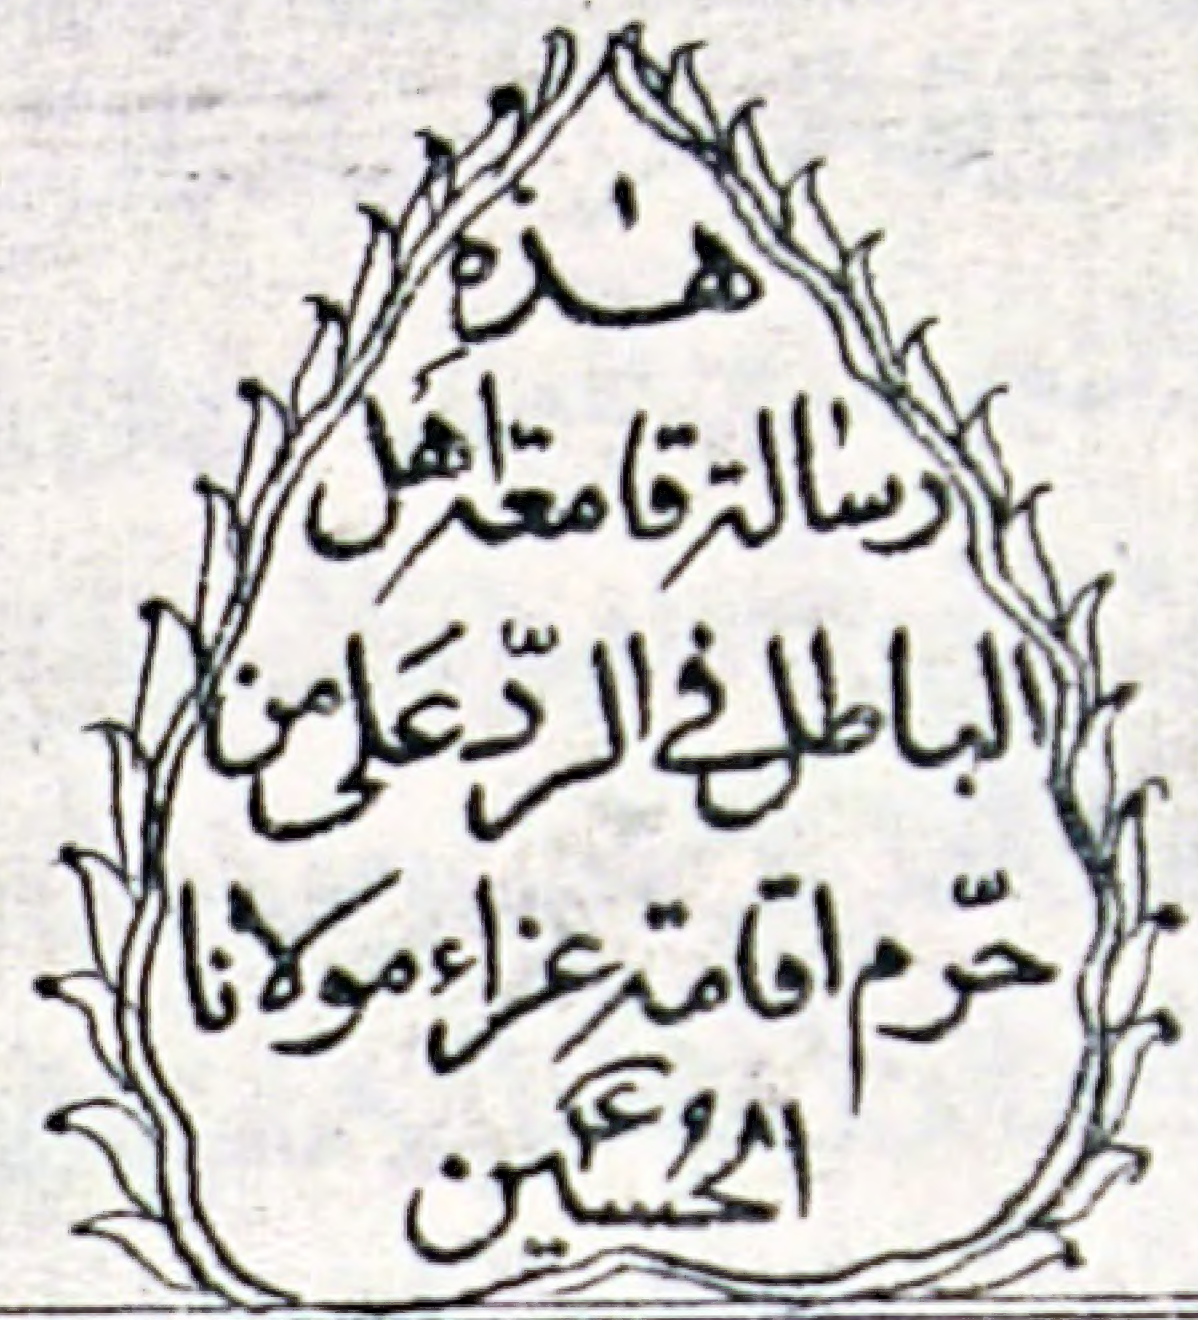 هٰذه
رسٰالة قامعة اهَل
الباطل في الردّ عَلى من
حرّم اقامة عزاء مولانا
الحُسَين ع